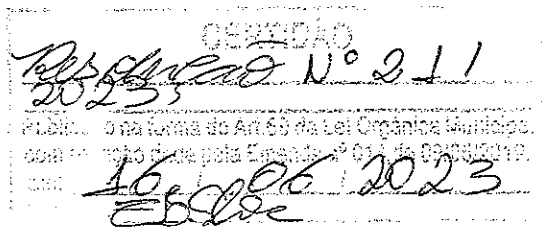 CERTIDÃO
Resolução Nº 211
2023
Publicado na forma do Art.69 da Lei Orgânica Municipal
com redação dada pela Emenda nº 011 de
16 / 06 / 2023